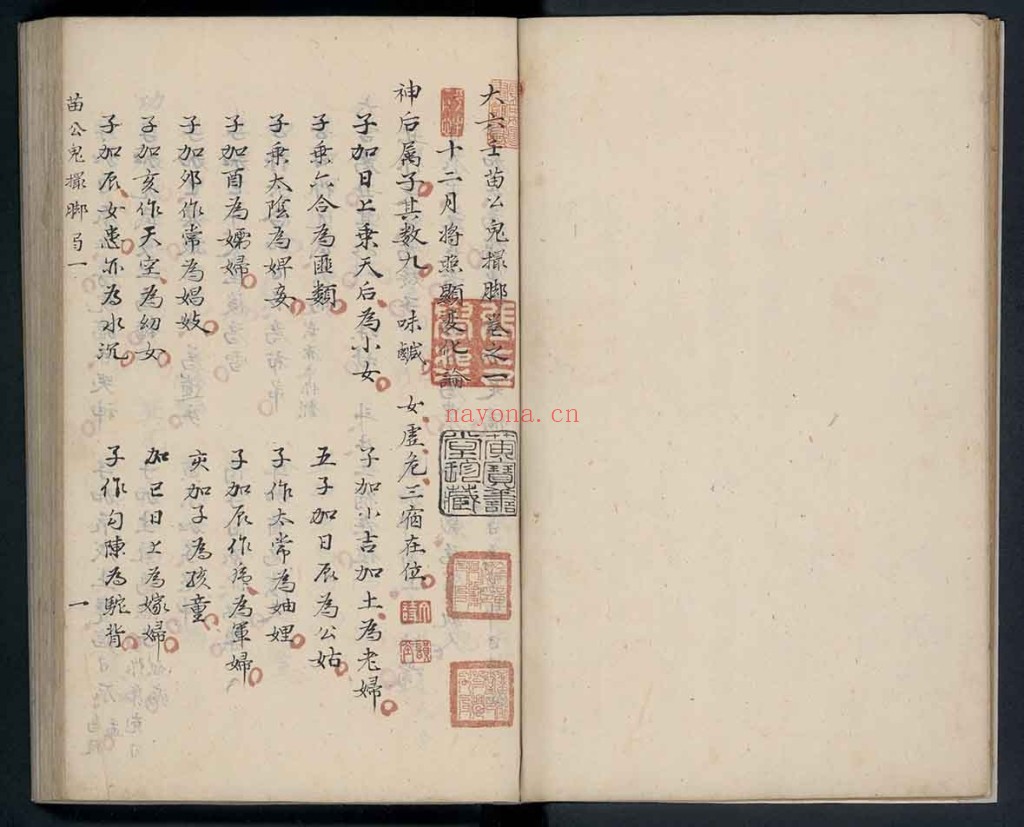 大六壬苗公鬼撮脚卷之一
十二月將照顯變化論
神后属子其數九味鹹 女虛危三宿在位
子加日上乘天后為小女 子加小吉加土為老婦
子乘六合為匪類 五子加日辰為公姑
子乘太陰為婢妾 子作太常為妯娌
子加酉為孀婦 子加辰作虎為軍婦
子加卯作常為娼妓 亥加子為孩童
子加亥作天空為幼女 加巳日上為嫁婦
子加辰女患亦為水沉 子作勾陳為駝背
苗公鬼撮脚 一 一
黃賓書堂珍藏
nayona.cn